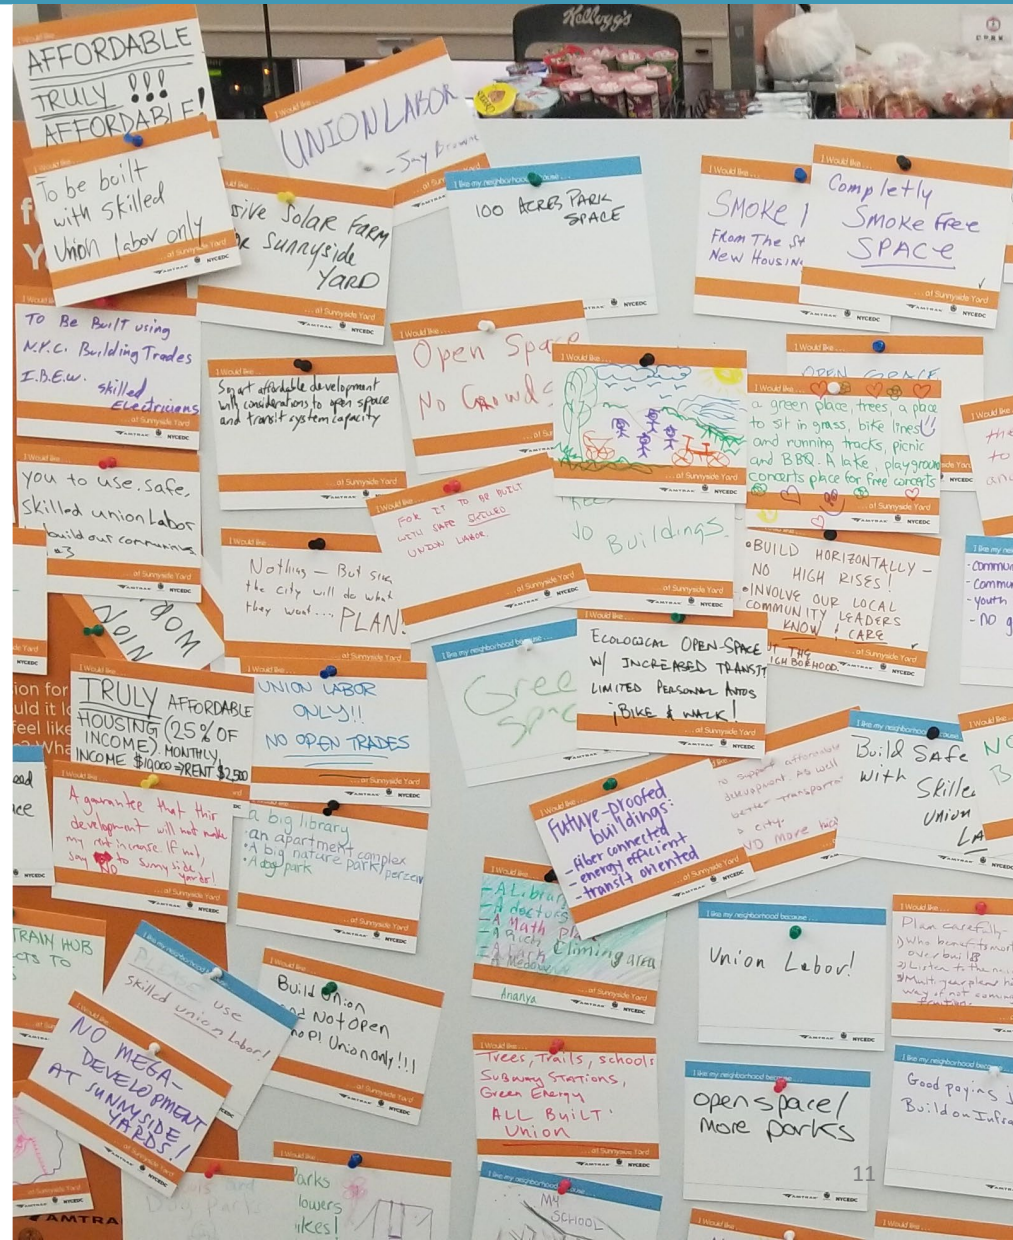 Kellogg's
I Would like...
AFFORDABLE
TRULY !!!
AFFORDABLE!
I Would like...
UNION LABOR
- Jay
I Would like...
To be built
with skilled
Union labor only
...at Sunnyside Yard
AMTRAK NYCEDC
Solar Farm
Sunnyside
YARD
AMTRAK NYCEDC
I like my neighborhood because...
100 ACRES PARK
SPACE
AMTRAK NYCEDC
I Would like...
SMOKE
FROM The
New Housing
I Would like...
Completly
SMOKE Free
SPACE
...at Sunnyside Yard
AMTRAK NYCEDC
I Would
To Be Built using
N.Y.C. Building Trades
I.B.E.W. skilled
Electricians
...at Sunnyside Yard
AMTRAK NYCEDC
I Would like...
Smart affordable development
with considerations to open space
and transit system capacity
...at Sunnyside Yard
AMTRAK NYCEDC
I Would like...
Open Space
No Crowds
I Would like...
...at Sunnyside Yard
AMTRAK NYCEDC
I Would like...
OPEN SPACE
I Would like
a green place, trees, a place
to sit in grass, bike lines
and running tracks, picnic
and BBQ. A lake, playground
concerts place for free concerts
...at Sunnyside Yard
AMTRAK NYCEDC
I Would like
the
to
I Would like...
you to use safe,
skilled union Labor
build our communities
#3
...at Sunnyside Yard
AMTRAK NYCEDC
I Would like...
FOR IT TO BE BUILT
WITH SAFE SKILLED
UNION LABOR
...at Sunnyside Yard
AMTRAK NYCEDC
NO Buildings
...at Sunnyside Yard
AMTRAK NYCEDC
I Would like...
Nothing - But
the city will do what
they want.... PLAN!
...at Sunnyside Yard
• BUILD HORIZONTALLY -
NO HIGH RISES!
• INVOLVE OUR LOCAL
COMMUNITY LEADERS
KNOW & CARE
THE
NEIGHBORHOOD.
NYCEDC
I like my
- youth
I like my neighborhood because...
Green
Space
I Would like...
ECOLOGICAL OPEN-SPACE
W/ INCREASED TRANSIT
LIMITED PERSONAL AUTOS
¡BIKE & WALK!
...at Sunnyside Yard
AMTRAK NYCEDC
I Would like...
TRULY AFFORDABLE
HOUSING (25% OF
INCOME). MONTHLY
INCOME $10,000 => RENT $2,500
I Would like...
UNION LABOR
ONLY!!
NO OPEN TRADES
...at Sunnyside Yard
AMTRAK NYCEDC
I Would like...
A guarantee that this
development will not make
my rent increase. If not,
say NO to Sunnyside
yards!
...at Sunnyside Yard
AMTRAK NYCEDC
a big library
an apartment complex
• A big nature park/
• A dog park
...at Sunnyside Yard
AMTRAK NYCEDC
I Would like...
Future-proofed
buildings:
- fiber connected
- energy efficient
- transit oriented
...at Sunnyside Yard
AMTRAK NYCEDC
support affordable
development. As well
better transport
city.
I like my neighborhood because...
Build Safe
with Skilled
Union
I Would like
NO
I Would like
- A Library
- A doctors
- A Math
- A Rich Climing area
- A Park
- A Medow
...at Sunnyside Yard
Ananya
AMTRAK NYCEDC
I like my neighborhood because...
Union Labor!
AMTRAK NYCEDC
I Would like...
Plan carefully-
1) Who benefits
overbuild
2) Listen to the
3) Multi year plans
way of not coming
fruition
TRAIN HUB
TO
I like my neighborhood because
PLEASE use
skilled union Labor!
I Would like...
Build Union
Not Open
no PI Union only!!!
...at Sunnyside Yard
AMTRAK NYCEDC
I Would like...
NO MEGA-
DEVELOPMENT
AT SUNNYSIDE
YARDS!
...at Sunnyside Yard
AMTRAK NYCEDC
I Would like...
Trees, Trails, schools
Subway Stations,
Green Energy
ALL BUILT
Union
...at Sunnyside Yard
AMTRAK NYCEDC
I like my neighborhood because
open space/
More parks
AMTRAK NYCEDC
I like my neighborhood because
Good paying
Build on
11
AMTRAK
and
Dog Parks
I Would like...
I like my neighborhood because
MY
SCHOOL
I Would like...
I Would like...